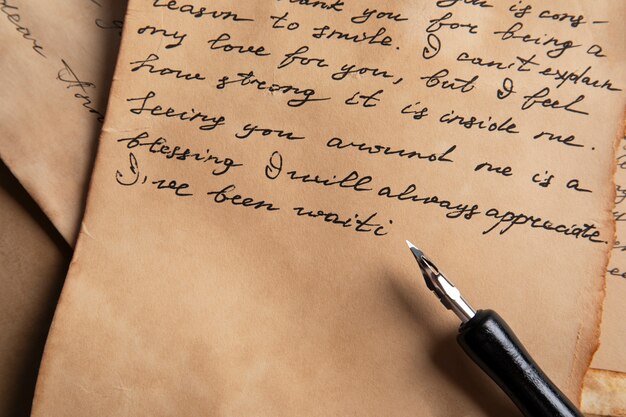 thank you for being a
reason to smile. I can't explain
my love for you, but I feel
how strong it is inside me.
Seeing you around me is a
blessing I will always appreciate.
I've been waiti
Dear Ann